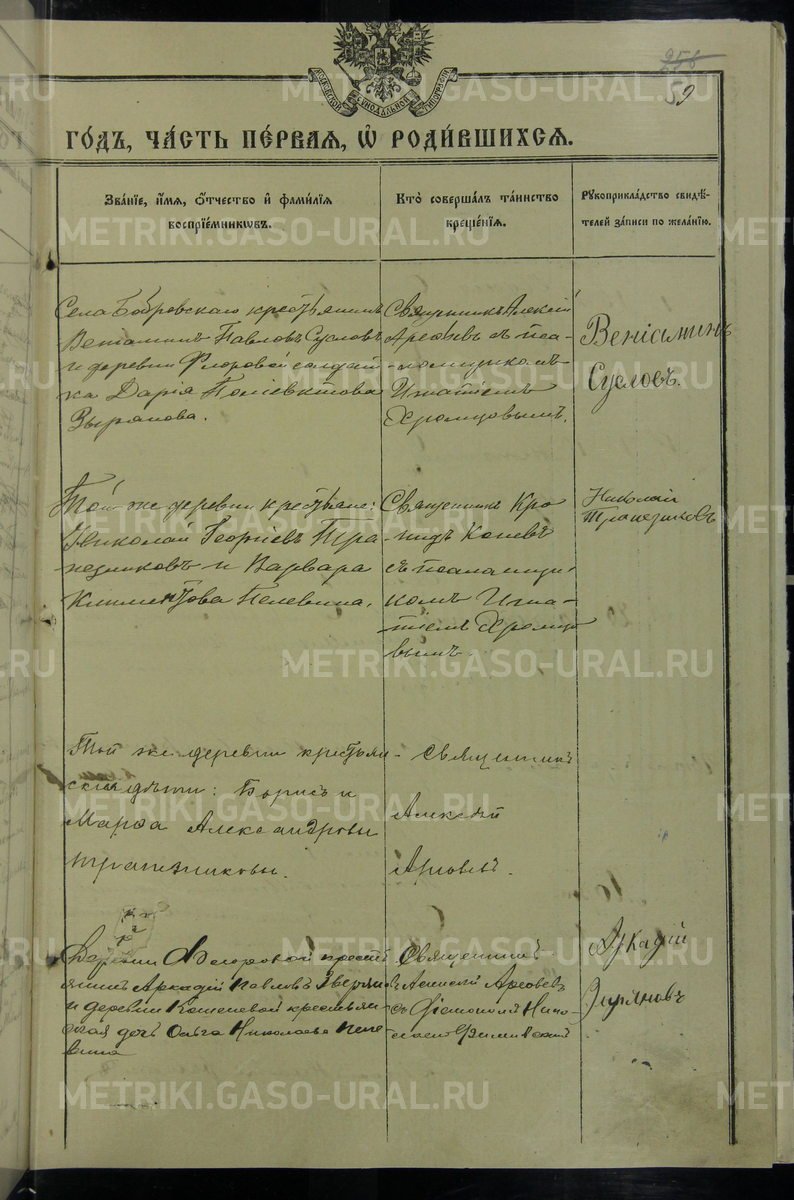 258
59
МОСКОВСКОЙ СѶНОДАЛЬНОЙ ТИПОГРАФІИ
ГО́ДЪ, ЧА́СТЬ ПЕ́РВАЯ, Ѡ҆ РОДИ́ВШИХСЯ.
Зва́нїе, и҆́мя, ѻ҆́тчество и҆ фами́лїя воспрїе́мникѡвъ.
Кто̀ соверша́лъ та́инство креще́нїя.
Рꙋкоприкла́дство свидѣ́телей за́писи по жела́нїю.
Села Бобровскаго крестьянинъ
Веніаминъ Павловъ Сусловъ
и деревни Флоровой солдат
ка Дарія Поліевктова
Зырянова.
Священникъ Алексій
Арефьевъ съ пса-
ломщикомъ
Игнатіемъ
Хромцовымъ.
Веніаминъ
Сусловъ.
Той же деревни крестьяне:
Николай Георгіевъ Тра
пезниковъ и Варвара
Климентова Пелевина.
Священникъ Кро
нидъ Коневъ
съ псаломщи
комъ Игна-
тіемъ Хромцо
вымъ.
Николай
Трапезниковъ
Той же деревни крестьян-
скія дѣти: Борисъ и
Марѳа Александровы
Трапезниковы.
Священникъ
Алексій
Деревни Ѳедоровой кресть
янинъ Аркадій Павловъ Зырян
и деревни Кошелевой крестьян
ская дочь Ольга Николаева Пеле
вина
Священникъ
Алексій
съ Діакономъ Нико
лаемъ
Аркадій
Зыряновъ
METRIKI.GASO-URAL.RU